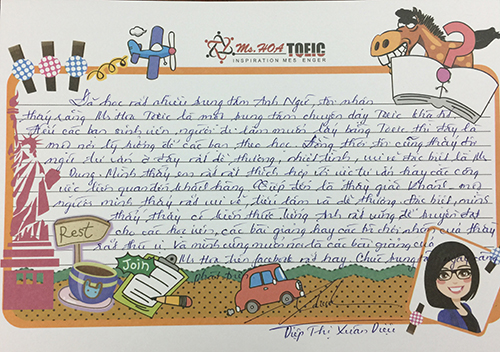 Ms. HOA TOEIC
INSPIRATION MESSENGER
Đã học rất nhiều trung tâm Anh Ngữ, tôi nhận
thấy rằng Ms Hoa Toeic là một trung tâm chuyên dạy Toeic khá tốt
Nếu các bạn sinh viên, người đi làm muốn lấy bằng Toeic thì đây là
một nơi lý tưởng để các bạn theo học. Đồng thời tôi cũng thấy đội
ngũ tư vấn ở đây rất dễ thương, nhiệt tình, vui vẻ đặc biệt là Ms
Dung. Mình thấy em rất rất thích hợp với việc tư vấn hay các công
việc liên quan tới khách hàng. Tiếp đến là thầy giáo Khánh, mọi
người mình thấy rất vui vẻ, điềm và dễ thương. Đặc biệt, mình
thấy, thầy có kiến thức tiếng Anh rất vững để truyền đạt
cho các học viên, các bài giảng hay các trò chơi của thầy
rất thú vị. Và mình cũng muốn các bài giảng của
Ms Hoa trên facebook rất hay. Chúc trung
phát
Rest
Join
Diệp Thị Xuân Diệu